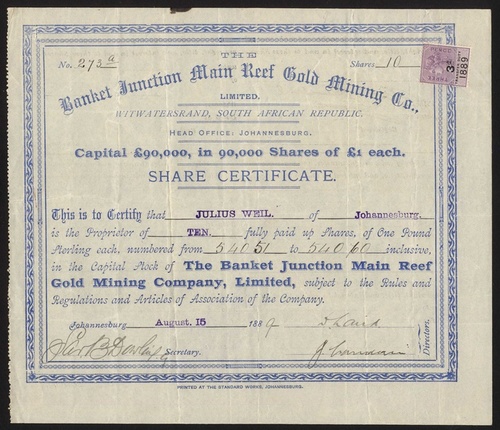 THE
No. 273a Shares 10
Banket Junction Main Reef Gold Mining Co.,
LIMITED.
WITWATERSRAND, SOUTH AFRICAN REPUBLIC.
HEAD OFFICE: JOHANNESBURG.
Capital £90,000, in 90,000 Shares of £1 each.
SHARE CERTIFICATE.
This is to Certify that JULIUS WEIL. of Johannesburg.
is the Proprietor of TEN. fully paid up Shares, of One Pound
Sterling each, numbered from 54051 to 54060 inclusive,
in the Capital Stock of The Banket Junction Main Reef
Gold Mining Company, Limited, subject to the Rules and
Regulations and Articles of Association of the Company.
Johannesburg August. 15 1889
Secretary.
Directors.
PRINTED AT THE STANDARD WORKS, JOHANNESBURG.
1889